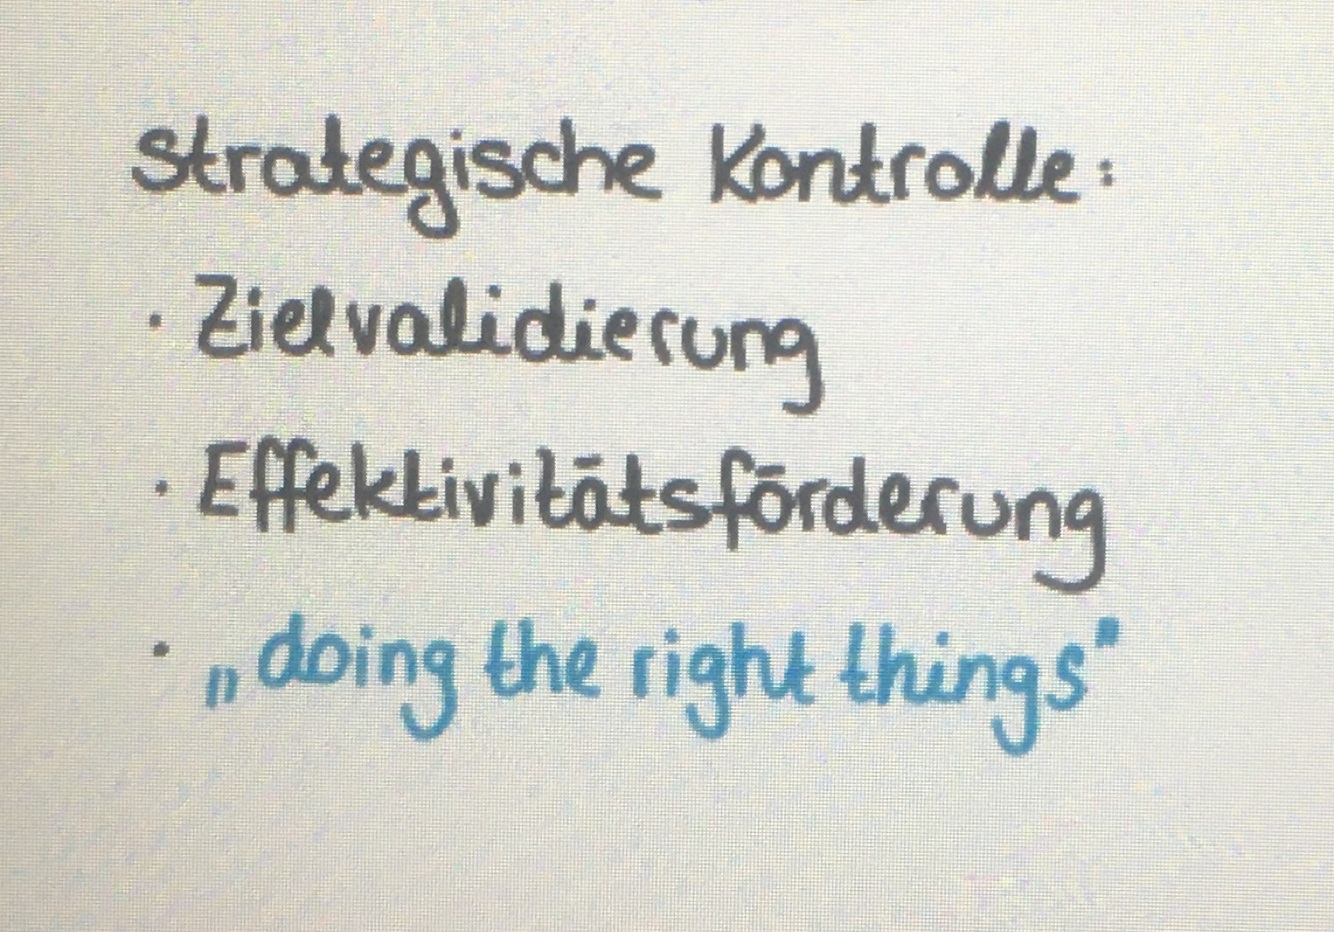 Strategische Kontrolle:
· Zielvalidierung
· Effektivitätsförderung
· „doing the right things"